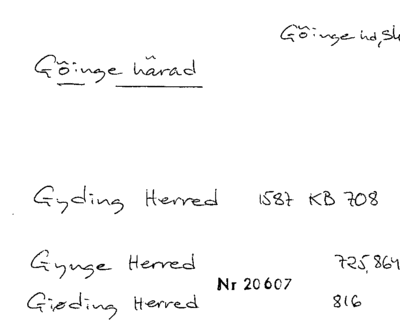 Göinge hd, Sk
Göinge härad
Gyding Herred 1587 KB 708
Gynge Herred 725, 864
Nr 20607
Giøding Herred 816